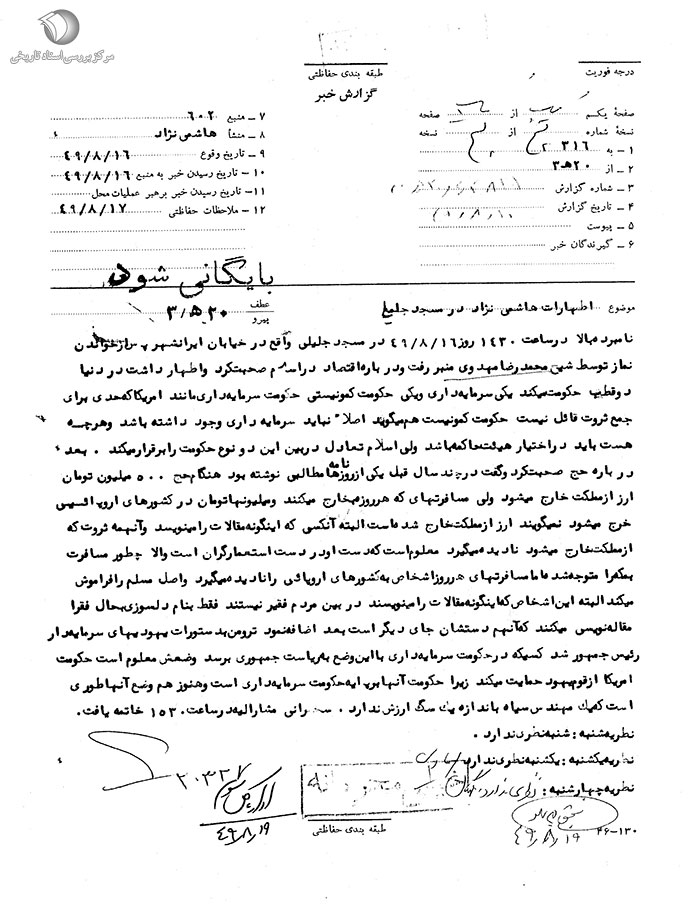 مرکز بررسی اسناد تاریخی
طبقه بندی حفاظتی
گزارش خبر
درجه فوریت
صفحهٔ یکم از صفحه
نسخهٔ شماره از نسخه
۱ – به ۳۱۶
۲ – از ۲۰هـ۳
۳ – شماره گزارش
۴ – تاریخ گزارش
۵ – پیوست
۶ – گیرندگان خبر
۷ – منبع ۶۰۲
۸ – منشأ هاشمی نژاد
۹ – تاریخ وقوع ۴۹/۸/۱۶
۱۰ – تاریخ رسیدن خبر به منبع ۴۹/۸/۱۶
۱۱ – تاریخ رسیدن خبر برهبر عملیات محل
۱۲ – ملاحظات حفاظتی ۴۹/۸/۱۷
بایگانی شود
عطف
پیرو
موضوع اظهارات هاشمی نژاد در مسجد جلیلی
نامبرده بالا در ساعت ۱۴۳۰ روز ۴۹/۸/۱۶ در مسجد جلیلی واقع در خیابان ایرانشهر پس از خواندن
نماز توسط شیخ محمد رضا مهدوی منبر رفت و در باره اقتصاد در اسلام صحبت کرد و اظهار داشت در دنیا
دو قطب حکومت میکند یکی سرمایه داری و یکی حکومت کمونیستی حکومت سرمایه داری مانند امریکا که حدی برای
جمع ثروت قائل نیست حکومت کمونیست هم میگوید اصلا" نباید سرمایه داری وجود داشته باشد و هرچه
هست باید در اختیار هیئت حاکمه باشد ولی اسلام تعادل در بین این دو نوع حکومت را برقرار میکند . بعد
در باره حج صحبت کرد و گفت در چند سال قبل یکی از روزنامه ها مطالبی نوشته بود هنگام حج ۵۰۰ میلیون تومان
ارز از مملکت خارج میشود ولی مسافرتهای که هر روز به خارج میکنند و میلیونها تومان در کشورهای اروپائی
خرج میشود نمیگویند ارز از مملکت خارج شده است البته آنکسی که اینگونه مقالات را مینویسد و آنهمه ثروت که
از مملکت خارج میشود نادیده میگیرد معلوم است که دست او در دست استعمارگران است والا چطور مسافرت
بمکه را متوجه شده اما مسافرتهای هر روز اشخاص به کشورهای اروپائی را نادیده میگیرد و اصل مسلم را فراموش
میکند البته این اشخاص که اینگونه مقالات را مینویسند در بین مردم فقیر نیستند فقط بنام دلسوزی بحال فقرا
مقاله نویسی میکنند که آنهم دستشان جای دیگر است بعد اضافه نمود ترومن بدستورات یهودیهای سرمایه دار
رئیس جمهور شد کسیکه در حکومت سرمایه داری با این وضع به ریاست جمهوری برسد وضعش معلوم است حکومت
امریکا از قوم یهود حمایت میکند زیرا حکومت آنها بر پایه حکومت سرمایه داری است و هنوز هم وضع آنها طوری
است که یک مهندس سیاه باندازه یک سگ ارزش ندارد . سخنرانی مشارالیه در ساعت ۱۵۳۰ خاتمه یافت.
نظریه شنبه : شنبه نظری ندارد .
نظریه یکشنبه : یکشنبه نظری ندارد
نظریه چهارشنبه : نظری ندارد
۴۹/۸/۱۹
طبقه بندی حفاظتی
۴۹/۸/۱۹
۴۶-۱۳۰